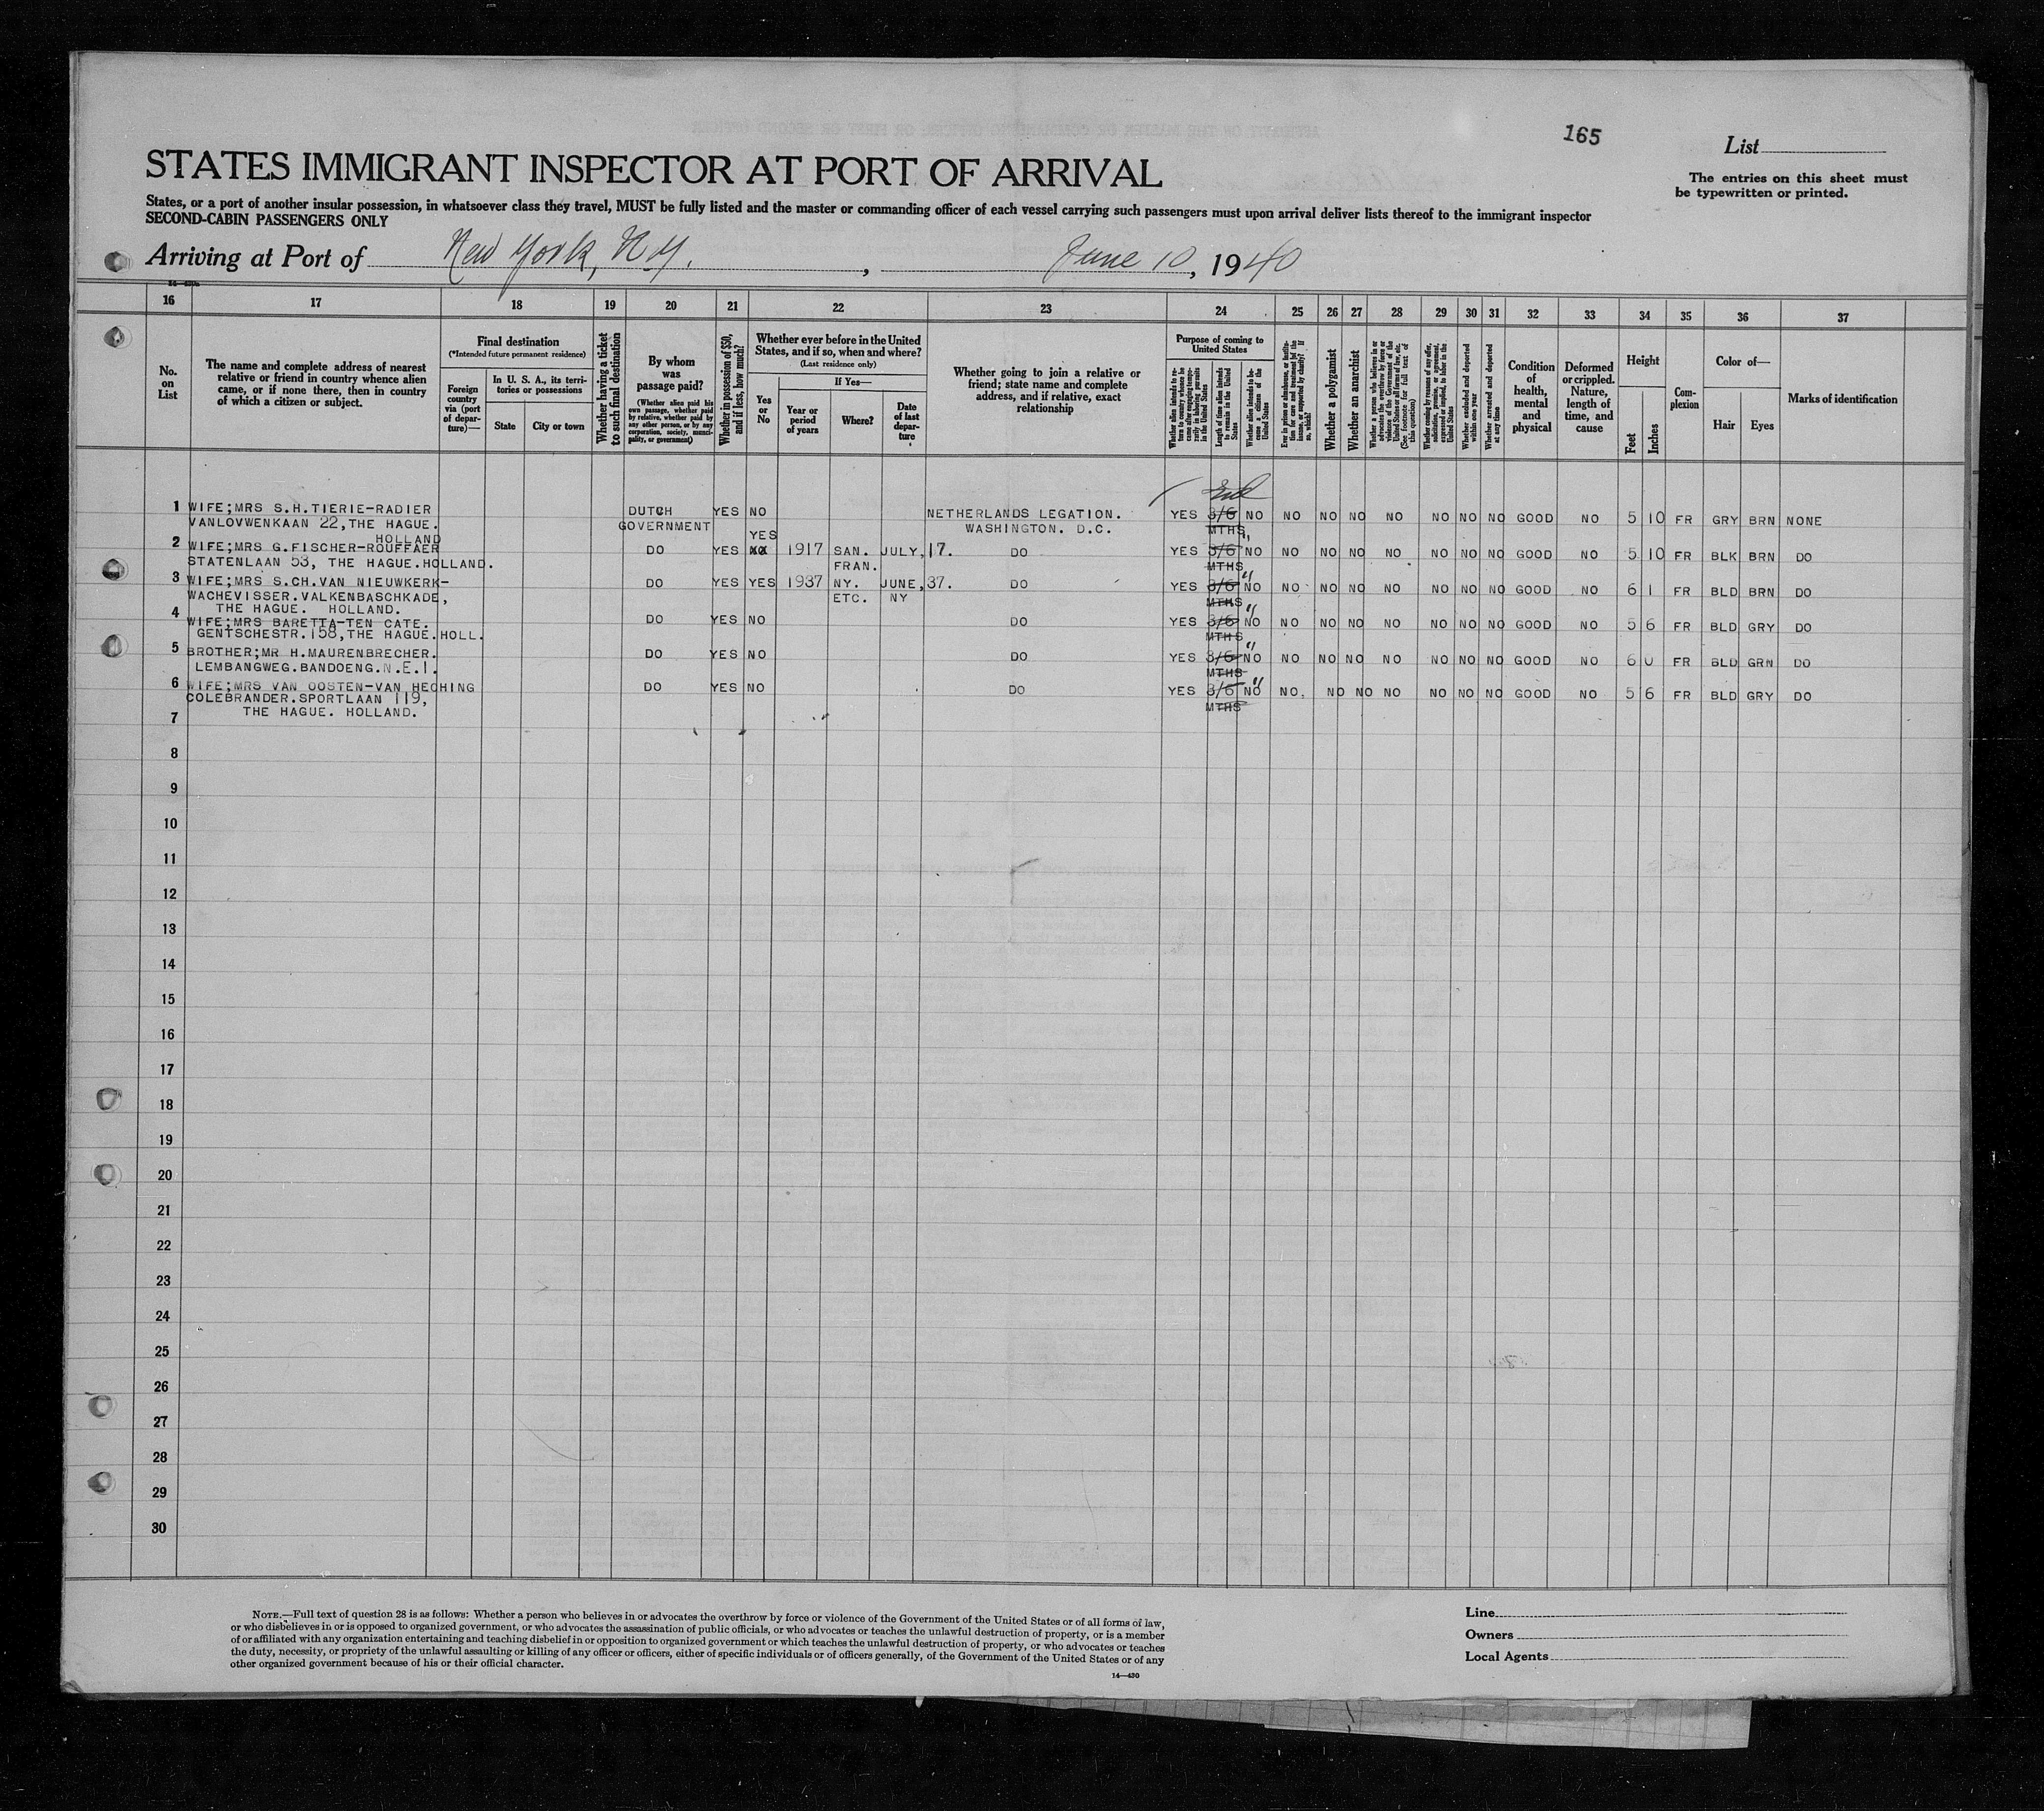 165
List
STATES IMMIGRANT INSPECTOR AT PORT OF ARRIVAL
The entries on this sheet must
be typewritten or printed.
States, or a port of another insular possession, in whatsoever class they travel, MUST be fully listed and the master or commanding officer of each vessel carrying such passengers must upon arrival deliver lists thereof to the immigrant inspector
SECOND-CABIN PASSENGERS ONLY
Arriving at Port of New York, N.Y. , June 10, 1940
16 17 18 19 20 21 22 23 24 25 26 27 28 29 30 31 32 33 34 35 36 37
No. on List
The name and complete address of nearest relative or friend in country whence alien came, or if none there, then in country of which a citizen or subject.
Final destination
(*Intended future permanent residence)
Foreign country via (port of departure)—
In U. S. A., its territories or possessions
State
City or town
Whether having a ticket to such final destination
By whom was passage paid?
(Whether alien paid his own passage, whether paid by relative, whether paid by any other person, or by any corporation, society, municipality, or government)
Whether in possession of $50, and if less, how much?
Whether ever before in the United States, and if so, when and where?
(Last residence only)
Yes or No
If Yes—
Year or period of years
Where?
Date of last departure
Whether going to join a relative or friend; state name and complete address, and if relative, exact relationship
Purpose of coming to United States
Length of time alien intends to remain in the United States
Whether alien intends to become a citizen of the United States
Whether a polygamist
Whether an anarchist
(See footnote for full text of this question)
Whether excluded and deported within one year
Whether arrested and deported at any time
Condition of health, mental and physical
Deformed or crippled. Nature, length of time, and cause
Height
Feet
Inches
Complexion
Color of—
Hair
Eyes
Marks of identification
1 WIFE;MRS S.H.TIERIE-RADIER DUTCH YES NO NETHERLANDS LEGATION. YES 3/6 NO NO NO NO NO NO NO NO GOOD NO 5 10 FR GRY BRN NONE
VANLOVWENKAAN 22,THE HAGUE. GOVERNMENT WASHINGTON. D.C. MTHS
HOLLAND YES
2 WIFE;MRS G.FISCHER-ROUFFAER DO YES XX 1917 SAN. JULY,17. DO YES 3/6 NO NO NO NO NO NO NO NO GOOD NO 5 10 FR BLK BRN DO
STATENLAAN 53, THE HAGUE.HOLLAND. FRAN. MTHS
3 WIFE;MRS S.CH.VAN NIEUWKERK- DO YES YES 1937 NY. JUNE,37. DO YES 3/6 " NO NO NO NO NO NO NO NO GOOD NO 6 1 FR BLD BRN DO
WACHEVISSER.VALKENBASCHKADE, ETC. NY MTHS
THE HAGUE. HOLLAND.
4 WIFE;MRS BARETTA-TEN CATE. DO YES NO DO YES 3/6 " NO NO NO NO NO NO NO NO GOOD NO 5 6 FR BLD GRY DO
GENTSCHESTR.158,THE HAGUE.HOLL. MTHS
5 BROTHER;MR H.MAURENBRECHER. DO YES NO DO YES 3/6 " NO NO NO NO NO NO NO NO GOOD NO 6 0 FR BLD GRN DO
LEMBANGWEG.BANDOENG.N.E.I. MTHS
6 WIFE;MRS VAN OOSTEN-VAN HECHING DO YES NO DO YES 3/6 " NO NO. NO NO NO NO NO NO GOOD NO 5 6 FR BLD GRY DO
COLEBRANDER.SPORTLAAN 119, MTHS
THE HAGUE. HOLLAND.
7
8
9
10
11
12
13
14
15
16
17
18
19
20
21
22
23
24
25
26
27
28
29
30
NOTE.—Full text of question 28 is as follows: Whether a person who believes in or advocates the overthrow by force or violence of the Government of the United States or of all forms of law,
or who disbelieves in or is opposed to organized government, or who advocates the assassination of public officials, or who advocates or teaches the unlawful destruction of property, or is a member
of or affiliated with any organization entertaining and teaching disbelief in or opposition to organized government or which teaches the unlawful destruction of property, or who advocates or teaches
the duty, necessity, or propriety of the unlawful assaulting or killing of any officer or officers, either of specific individuals or of officers generally, of the Government of the United States or of any
other organized government because of his or their official character.
14—430
Line
Owners
Local Agents